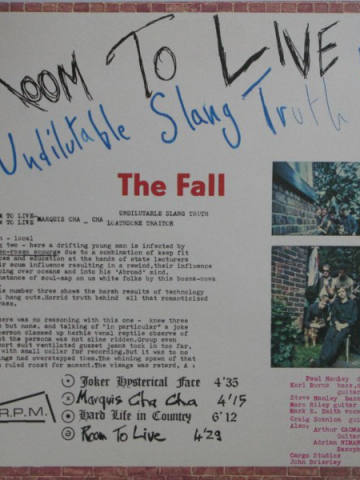 ROOM TO LIVE
Undilutable Slang Truth
The Fall
UNDILUTABLE SLANG TRUTH
TO LIVE-MARQUIS CHA _ CHA
TO LIVE LOATHSOME TRAITOR
- local
two - here a drifting young man is infected by
due to a combination of keep fit
and education at the hands of state lecturers
influence resulting in a rewind, their influence
over oceans and into his 'Abroad' mind.
of soul-map on us white folks by this bossa-nova
number three shows the harsh results of technology
hang outs. Horrid truth behind all that romanticised
was no reasoning with this one - knew three
but none, and talking of "in particular" a joke
person clammed up herbie venal reptile observe of
the persons was not slime ridden. Group even
suit ventilated gusset jeans took in too far,
with small collar for recording, but it was to no
had overstepped them. The whining speed of that
ruled roost for moment. The visage was retard, A :
Joker Hysterical Face 4'35
Marquis Cha Cha 4'15
Hard Life in Country 6'12
Room To Live 4'29
R.P.M.
Paul Hanley
Karl Burns bass,
guitar
Steve Hanley bass
Marc Riley guitar
Mark E. Smith
Craig Scanlon
Also,
Arthur CADMA
Guitar
Adrian NIMAN
Saxoph
Cargo Studios
John Brierley